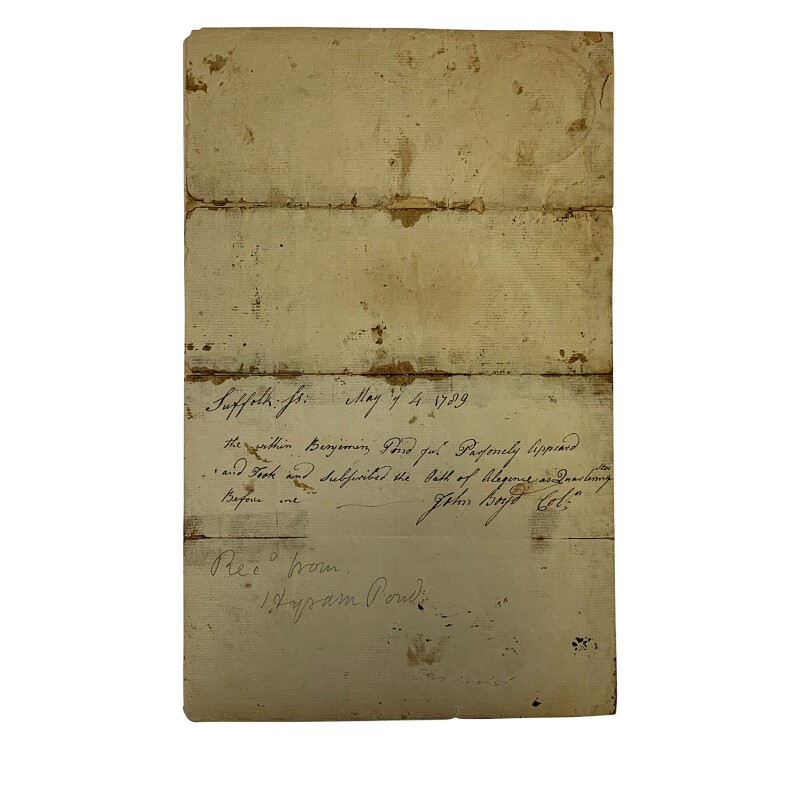 Suffolk Ss: May ye 4 1789
the within Benjemin Pond jur Parsonely Appeard
and Took and Subscribed the Oath of Alegence as Quartermaster
Before me John Boyd Coln
Recd from
Hyram Pond